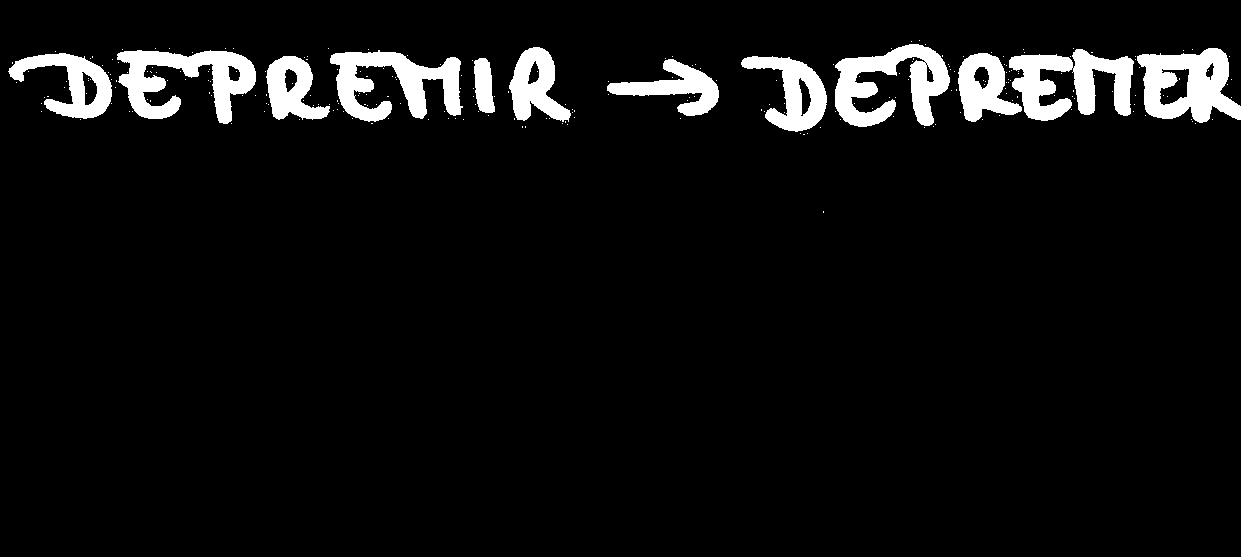 DEPREMIR → DEPREMER